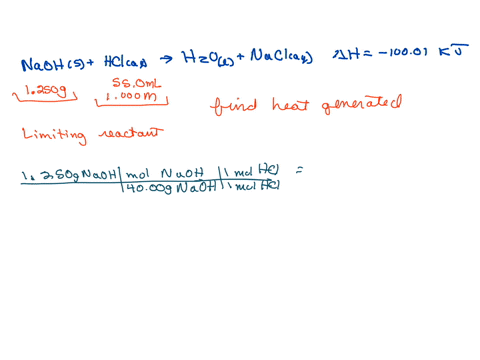 NaOH(s) + HCl(aq) → H2O(l) + NaCl(aq) ΔH = -100.01 KJ
1.250g 55.0mL
1.000M
find heat generated
Limiting reactant
1.250g NaOH | mol NaOH | 1 mol HCl =
40.00g NaOH | 1 mol HCl